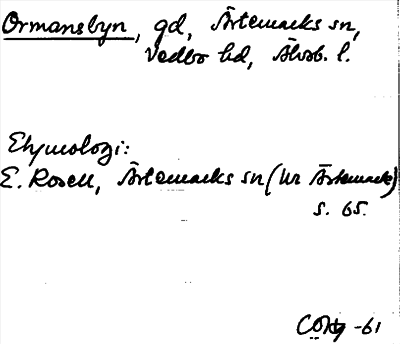 Ormansbyn, gd, Ärtemarks sn,
Vedbo hd, Älvsb. l.
Etymologi:
E. Rosell, Ärtemarks sn (ur Ärtemark)
s. 65.
-61